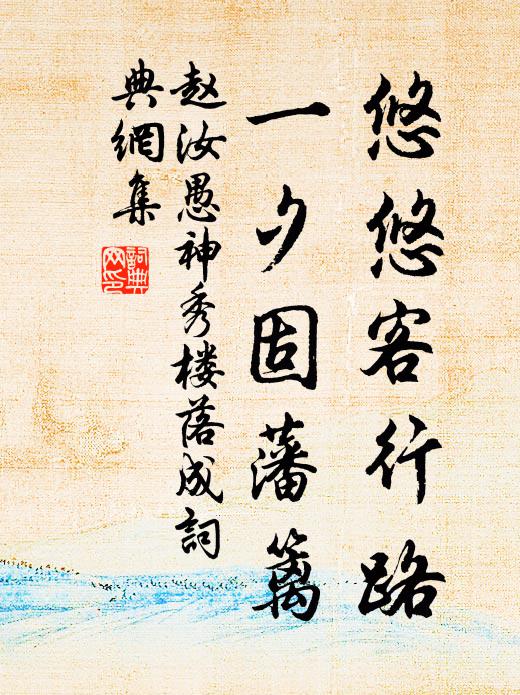 悠悠客行路
一夕固藩篱
赵汝愚神秀楼落成詞
典網集
詞典
网印